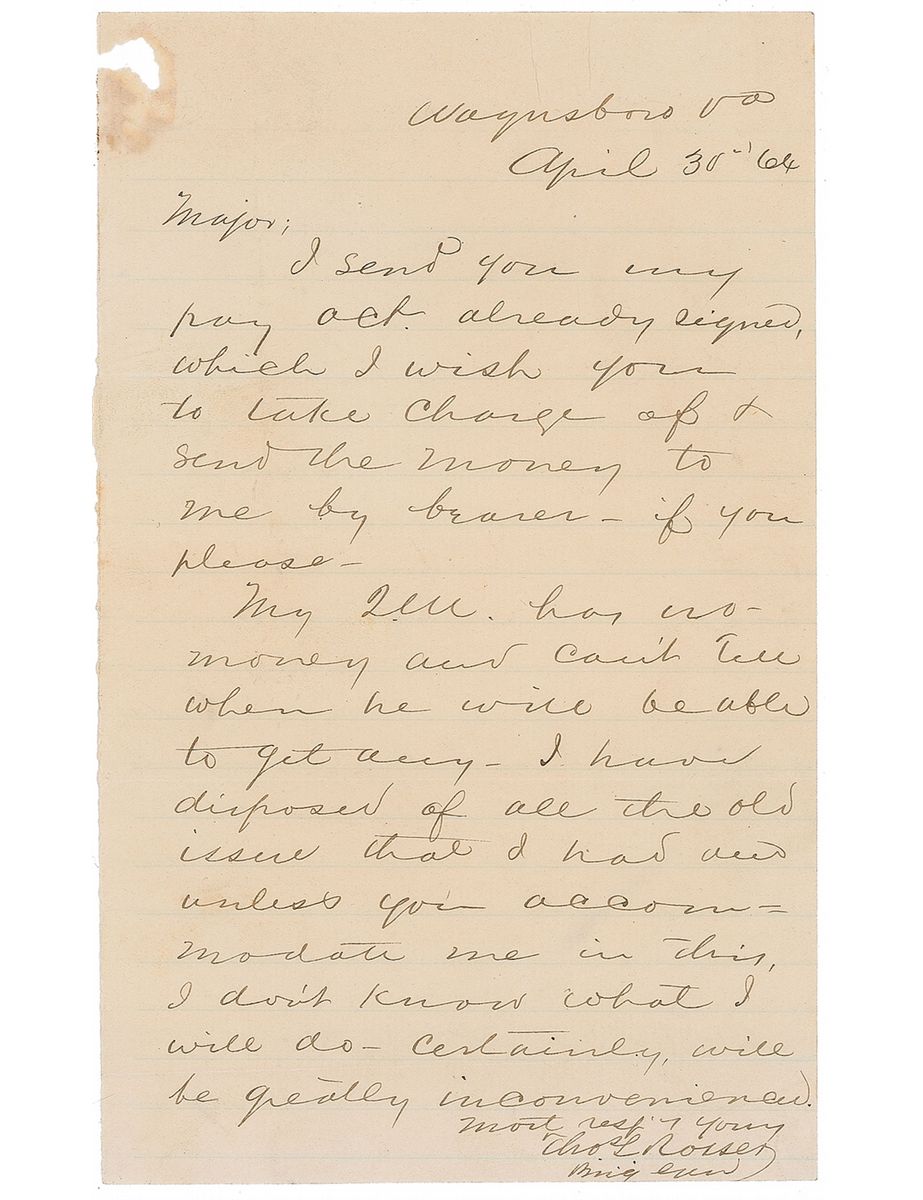 Waynsboro Va
April 30th 64
Major;
I send you my
pay act. already signed,
which I wish you
to take charge of &
send the money to
me by bearer – if you
please –
My Q.M. has no –
money and can't tell
when he will be able
to get any – I have
disposed of all the old
issue that I had and
unless you accom–
modate me in this,
I don't know what I
will do – certainly, will
be greatly inconvenienced.
Most respt yours
Tho L Rosser
Brig Genl